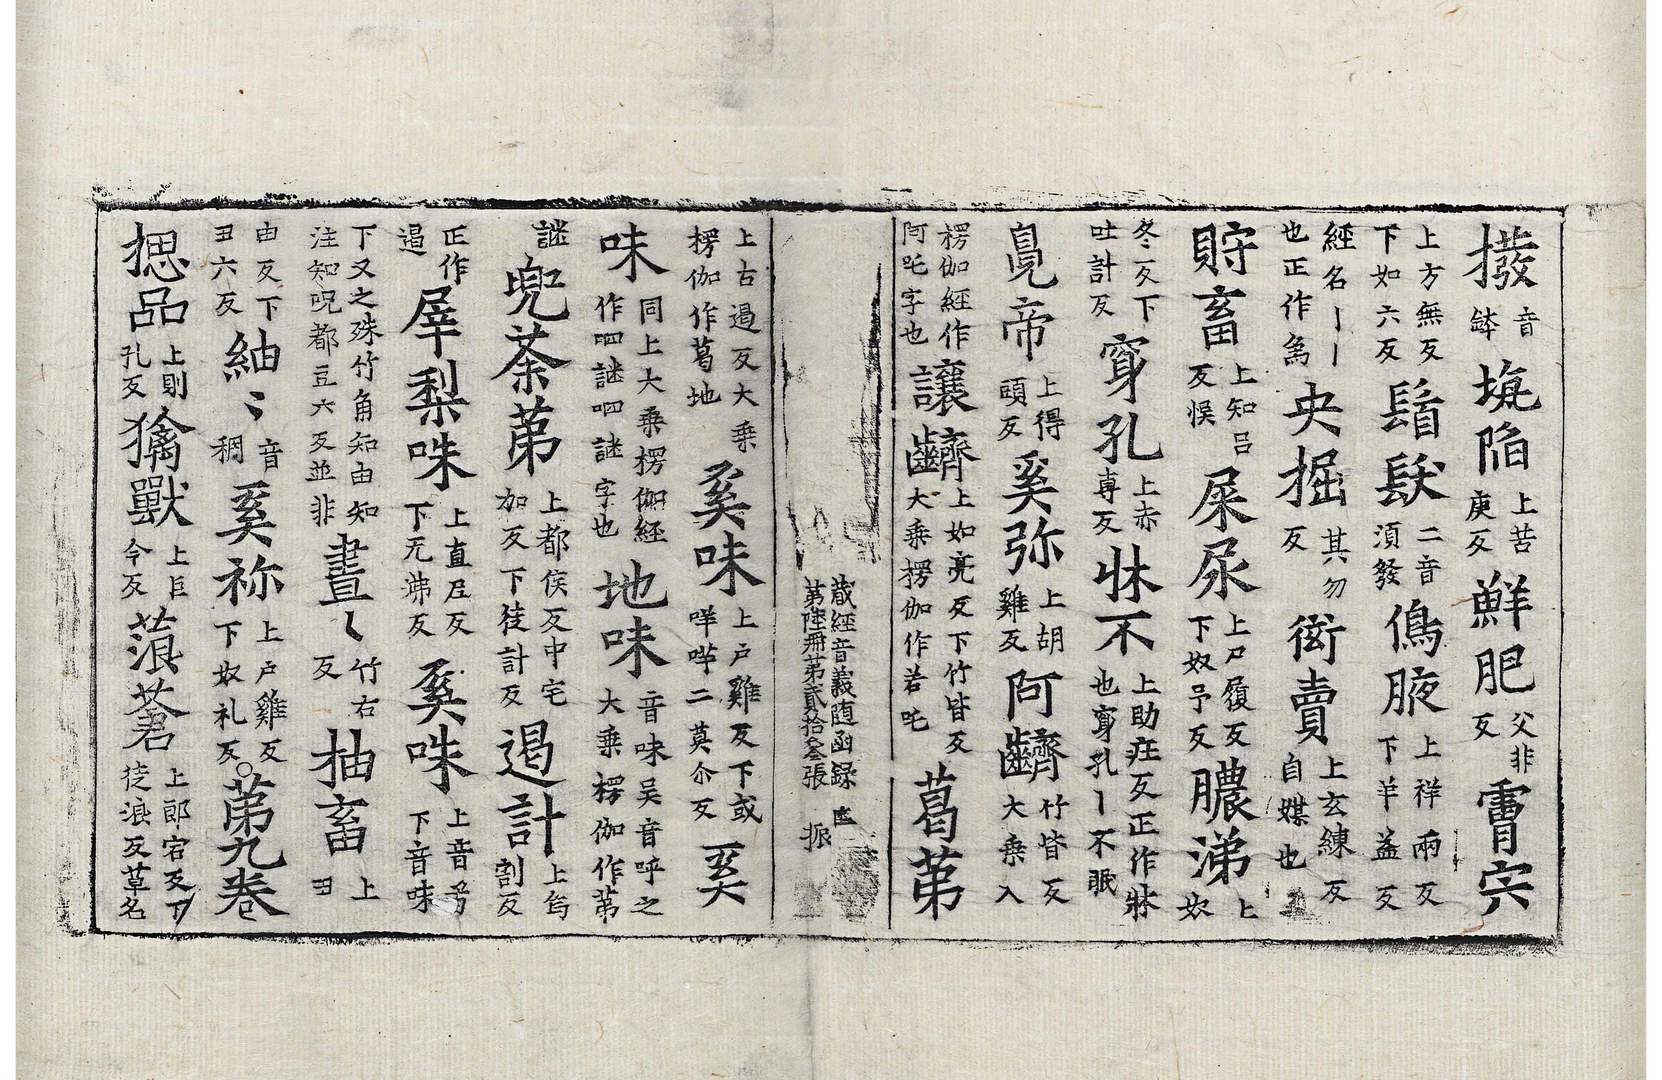 撥音鉢塊陷上苦庚反鮮肥父非反膚宍
上方無反下如六反鬚髮二音須發鳥腋上祥兩反下羊益反
經名丨丨也正作為央掘其勿反衒賣上玄練反自媒也
貯畜上知呂反悮屎尿上尸履反下奴予反膿涕上奴
冬反下吐計反穿孔上赤専反牀不上助庄反正作牀也穿孔丨不眠
㝵帝上得頤反奚弥上胡雞反阿䶩竹皆反大乗入
楞伽經作阿吒字也讓䶩上如亮反下竹皆反大乗楞伽作若吒葛苐
藏經音義随函録 第陸冊苐貳拾叄張 振
上古遏反大乗楞伽作葛地奚味上戸雞反下或咩哶二莫尒反奚
味同上大乗楞伽經作呬謎呬謎字也地味音味吴音呼之大乗楞伽作苐
謎兜荼苐上都侯反中宅加反下徒計反遏計上烏割反
正作遏犀梨咮上直尼反下无沸反奚咮上音兮下音味
下又之殊竹角知由知注知呪都豆六反並非晝丶竹右反抽畜上丑
由反下丑六反紬〻音稠奚祢上戸雞反下奴礼反○苐九卷
揌品上則孔反擒獸上巨今反蒗䓘上郎宕反下徒浪反草名